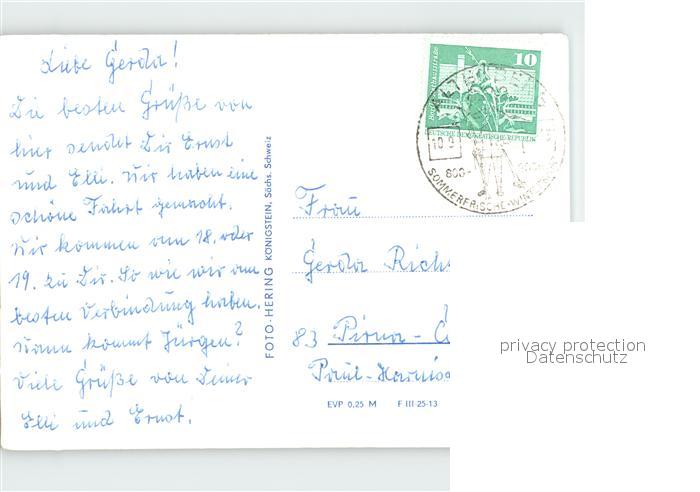 Liebe Gerda!
Die besten Grüße von
hier sendet Dir Ernst
und Elli. Wir haben eine
schöne Fahrt gemacht.
Wir kommen am 18. oder
19. zu Dir. So wie wir am
besten Verbindung haben.
Wann kommt Jürgen?
Viele Grüße von Deiner
Elli und Ernst.
FOTO-HERING KÖNIGSTEIN, Sächs. Schweiz
10
DEUTSCHE DEMOKRATISCHE REPUBLIK
10.9
800-
SOMMERFRISCHE-WINTER
Frau
Gerda Rich
83 Pirna-
Paul-
EVP 0,25 M F III-25-13
privacy protection
Datenschutz